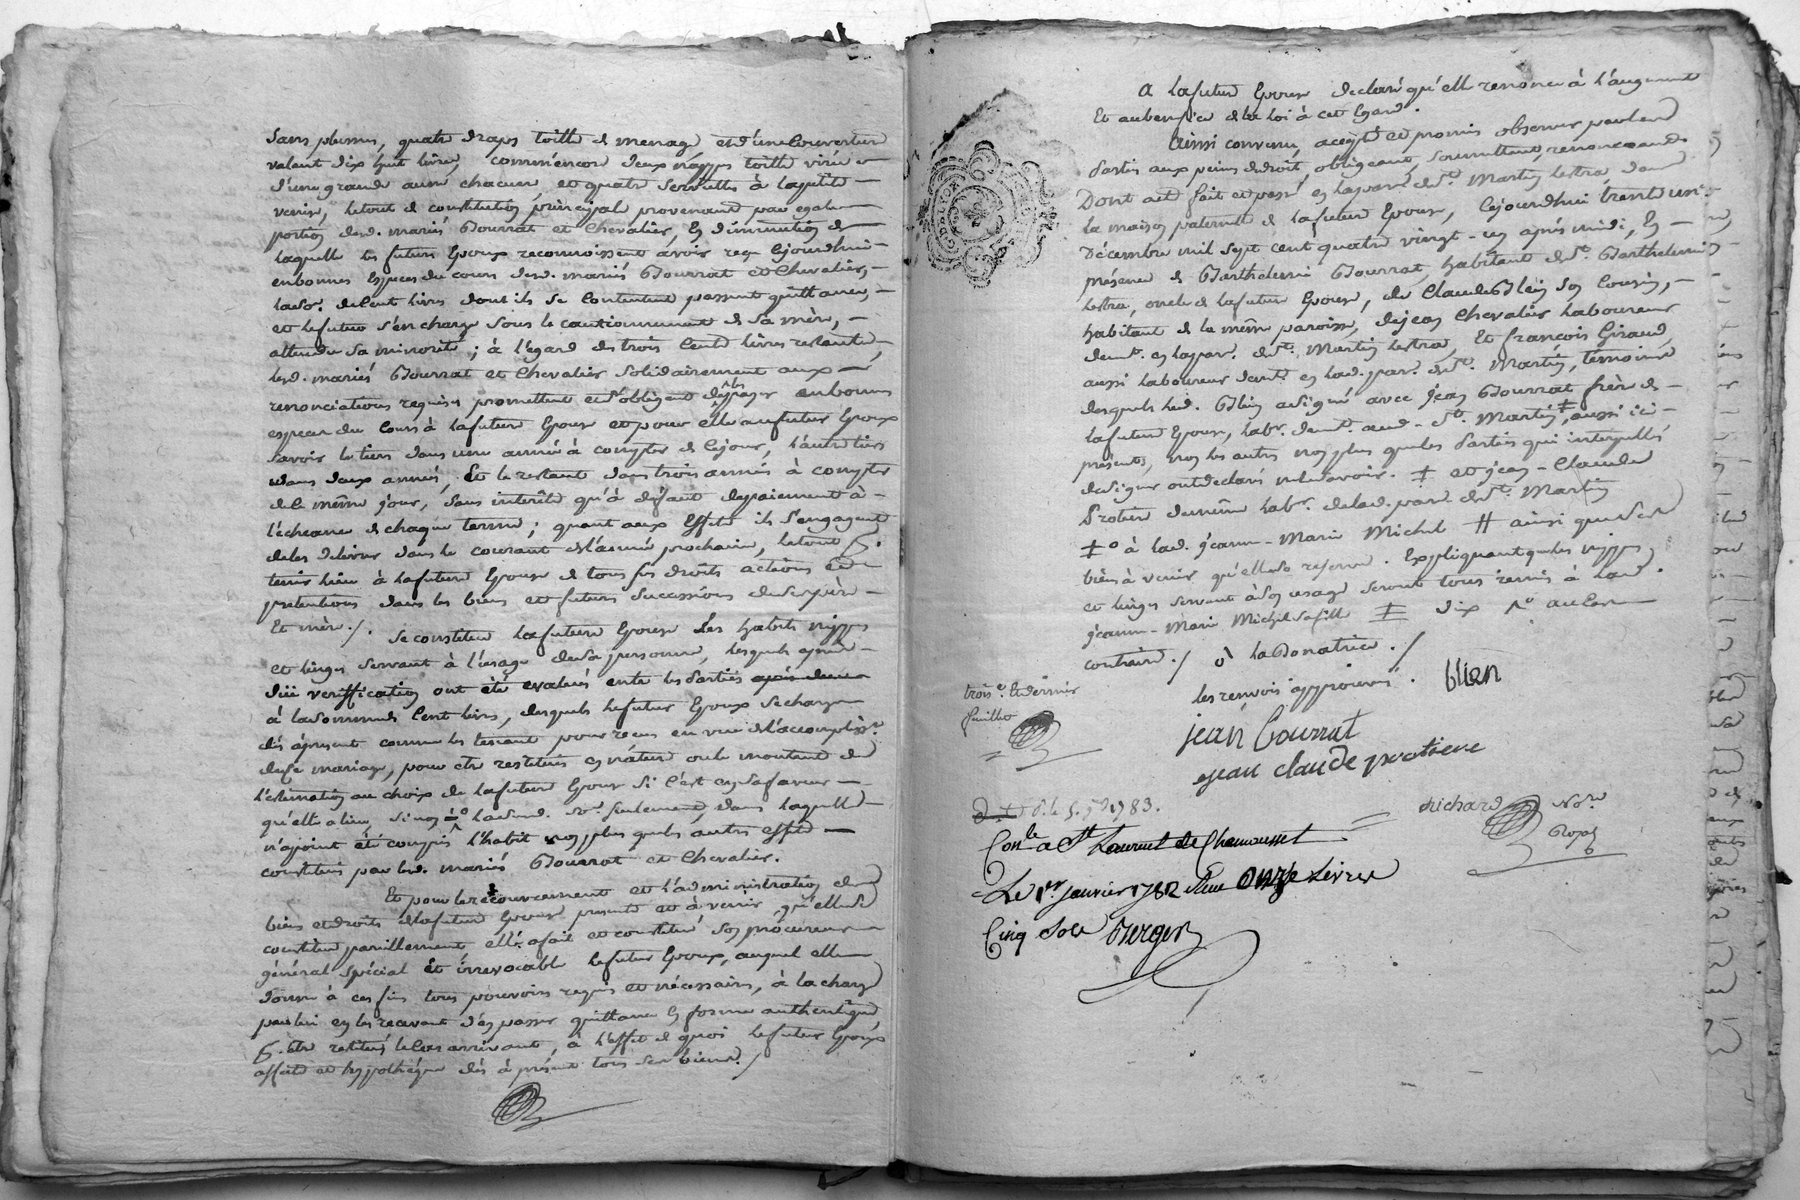 sans plumes, quatre draps toille de menage et d'une couverture
valant dix huit livres, commencer deux nappes toille virée
d'une grande aune chacune et quatre serviettes à la petite
venise, le tout de constitution principal provenant par egale
portion desd. mariés Bourrat et Chevalier, En diminution de
laquelle les futurs Epoux reconnoissent avoir reçu cejourdhui
en bonnes especes du cours desd. mariés Bourrat et Chevalier,
la so.e de Cent livres dont ils se Contentent passent quittance,
et le futur s'en charge sous le cautionnement de sa mère,
attendu sa minorité; à l'égard des trois Cent livres restante,
lesd. mariés Bourrat et Chevalier solidairement aux
renonciations requises promettent et s'obligent de payer en bonnes
especes du Cours à la future Epouse et pour elle au futur Epoux
savoir le tiers dans une année à compter de cejour, l'autre tiers
dans deux années, Et le restant dans trois années à compter
de le même jour, sans interêts qu'à défaut de paiement à
l'écheance de chaque terme; quant aux Effets ils s'engagent
de les delivrer dans le courant de l'année prochaine, le tout p.r
tenir lieu à la future Epouse de tous ses droits actions et
pretentions dans les biens et futures successions de ses père
Et mère./. Se constitue la future Epouse Les habits nippes
et linges servant à l'usage de sa personne, lesquels après
due veriffication ont été evalués entre les parties
à la somme de Cent livres, desquels le futur Epoux se charge
dès àpresent comme les tenant pour recus en vue de l'accompliss.t
du se mariage, pour etre restitués en nature ou le montant de
l'estimation au choix de la future Epouse si c'est en sa faveur
qu'elle a lieu, sinon à lad. so.e seulement, dans laquelle
n'a point été compris l'habit non plus que les autres effets
constitués par lesd. mariés Bourrat et Chevalier.
Et pour le recouvrement et l'administration des
biens et droits de la future Epouse presents et à venir qu'elle se
constitue pareillement elle a fait et constitué son procureur
général spécial et irrevocable le futur Epoux, auquel elle
donne à ces fins tous pouvoirs requis et nécessaires, à la charge
par lui en les recevant d'en passer quittance en forme authentique
p.r etre restitués le Cas arrivant, à l'effet de quoi le futur Epoux
affecte et hypothèque dès à présent tous ses biens./
A la future Epouse declaré qu'elle renonce à l'augment
Et au benefice de la loi à cet Egard.
Ainsi convenu, accepté et promis observer par les
parties aux peines de droit, obligeant, soumettant, renonceant
Dont acte fait et passé en la par.e de S.t Martin Lestra, dans
la maison paternelle de la future Epouse, cejourdhui trente un
Décembre mil sept cent quatre vingt-un après midi, En
présence de Barthelemi Bourrat, habitant de S.t Barthelemi
Lestra, oncle de la future Epouse, de Claude Blein son cousin,
habitant de la même paroisse, de jean Chevalier laboureur
demt. en la par. de S.t Martin Lestra, Et françois Giraud,
aussi laboureur demt. en lad. par. de S.t Martin, témoins
desquels led. Blein a signé avec jean Bourrat frère de
la future Epouse, lab.r demt. aud. S.t Martin ‡, aussi ici
présents, non les autres non plus que les parties qui interpellés
de signer ont déclaré ne le savoir. ‡ et jean-Claude
Protiere de même lab.r de lad. par.e de S.t Martin
‡o à lad. jeanne-Marie Michel # ainsi que les
biens à venir qu'elle se reserve. Expliquant que les nippes
et linges servant à son usage seront tous remis à lad.
jeanne-Marie Michel sa fille ‡ dix n.o au Cas
contraire./ ò la Donatrice./
les renvois approuvés. blien
trois.e et dernier
feuillet
jean bourrat
jean claude protiere
richard No.re
Roy.l
d. 8. le 5. 7.bre 1783.
Con.lé a S.t Laurent de Chamousset
Le 1.er janvier 1782 Reçu Onze Livres
Cinq Sols Berger